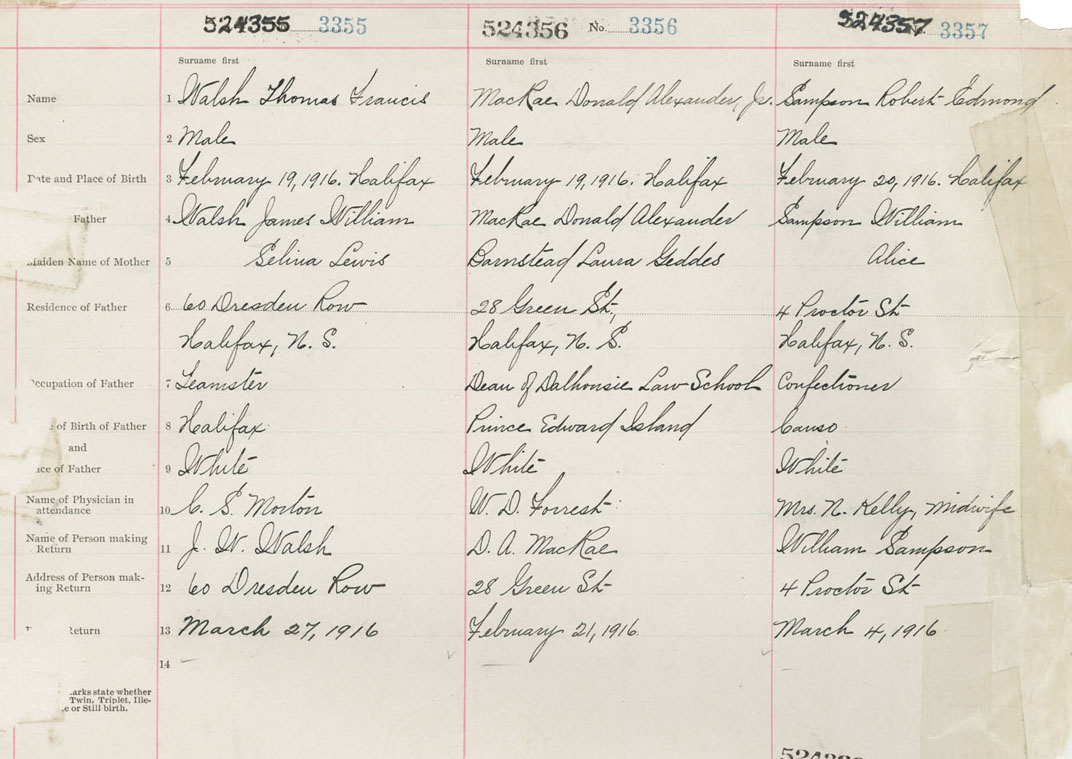 524355 3355 524356 No. 3356 524357 3357
Surname first Surname first Surname first
Name 1 Walsh Thomas Francis MacRae Donald Alexander, Jr. Sampson Robert Edmond
Sex 2 Male Male Male
Date and Place of Birth 3 February 19, 1916. Halifax February 19, 1916. Halifax February 20, 1916. Halifax
Father 4 Walsh James William MacRae Donald Alexander Sampson William
Maiden Name of Mother 5 Selina Lewis Barnstead Laura Geddes Alice
Residence of Father 6 60 Dresden Row 28 Green St., 4 Proctor St
Halifax, N. S. Halifax, N. S. Halifax, N. S.
Occupation of Father 7 Teamster Dean of Dalhousie Law School Confectioner
of Birth of Father 8 Halifax Prince Edward Island Canso
and
ace of Father 9 White White White
Name of Physician in
attendance 10 C. S. Morton W. D. Forrest Mrs. N. Kelly, Midwife
Name of Person making
Return 11 J. W. Walsh D. A. MacRae William Sampson
Address of Person mak-
ing Return 12 60 Dresden Row 28 Green St 4 Proctor St
Return 13 March 27, 1916 February 21, 1916. March 4, 1916
14
arks state whether
Twin, Triplet, Ille-
e or Still birth.